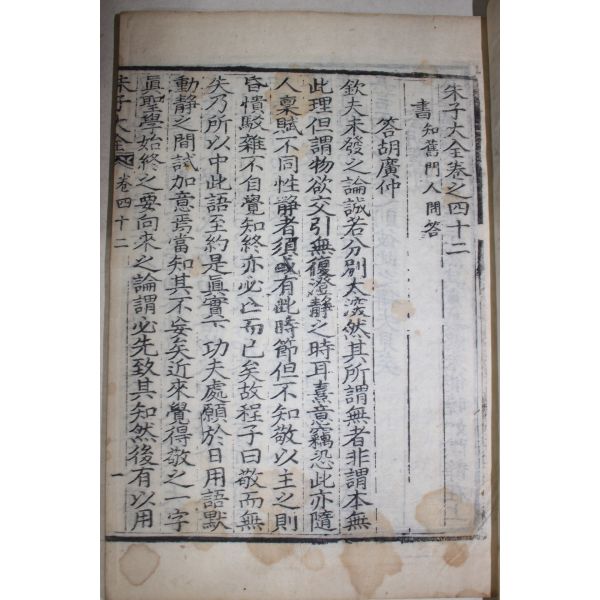 朱子大全卷之四十二
書 知舊門人問答
答胡廣仲
欽夫未發之論誠若分別太深然其所謂無者非謂本無
此理但謂物欲交引無復澄靜之時耳熹意竊恐此亦隨
人稟賦不同性靜者須或有此時節但不知敬以主之則
昏憒駁雜不自覺知終亦必亡而已矣故程子曰敬而無
失乃所以中此語至約是眞實下功夫處願於日用語默
動靜之間試加意焉當知其不妄矣近來覺得敬之一字
眞聖學始終之要向來之論謂必先致其知然後有以用
朱子大全 卷四十二 一